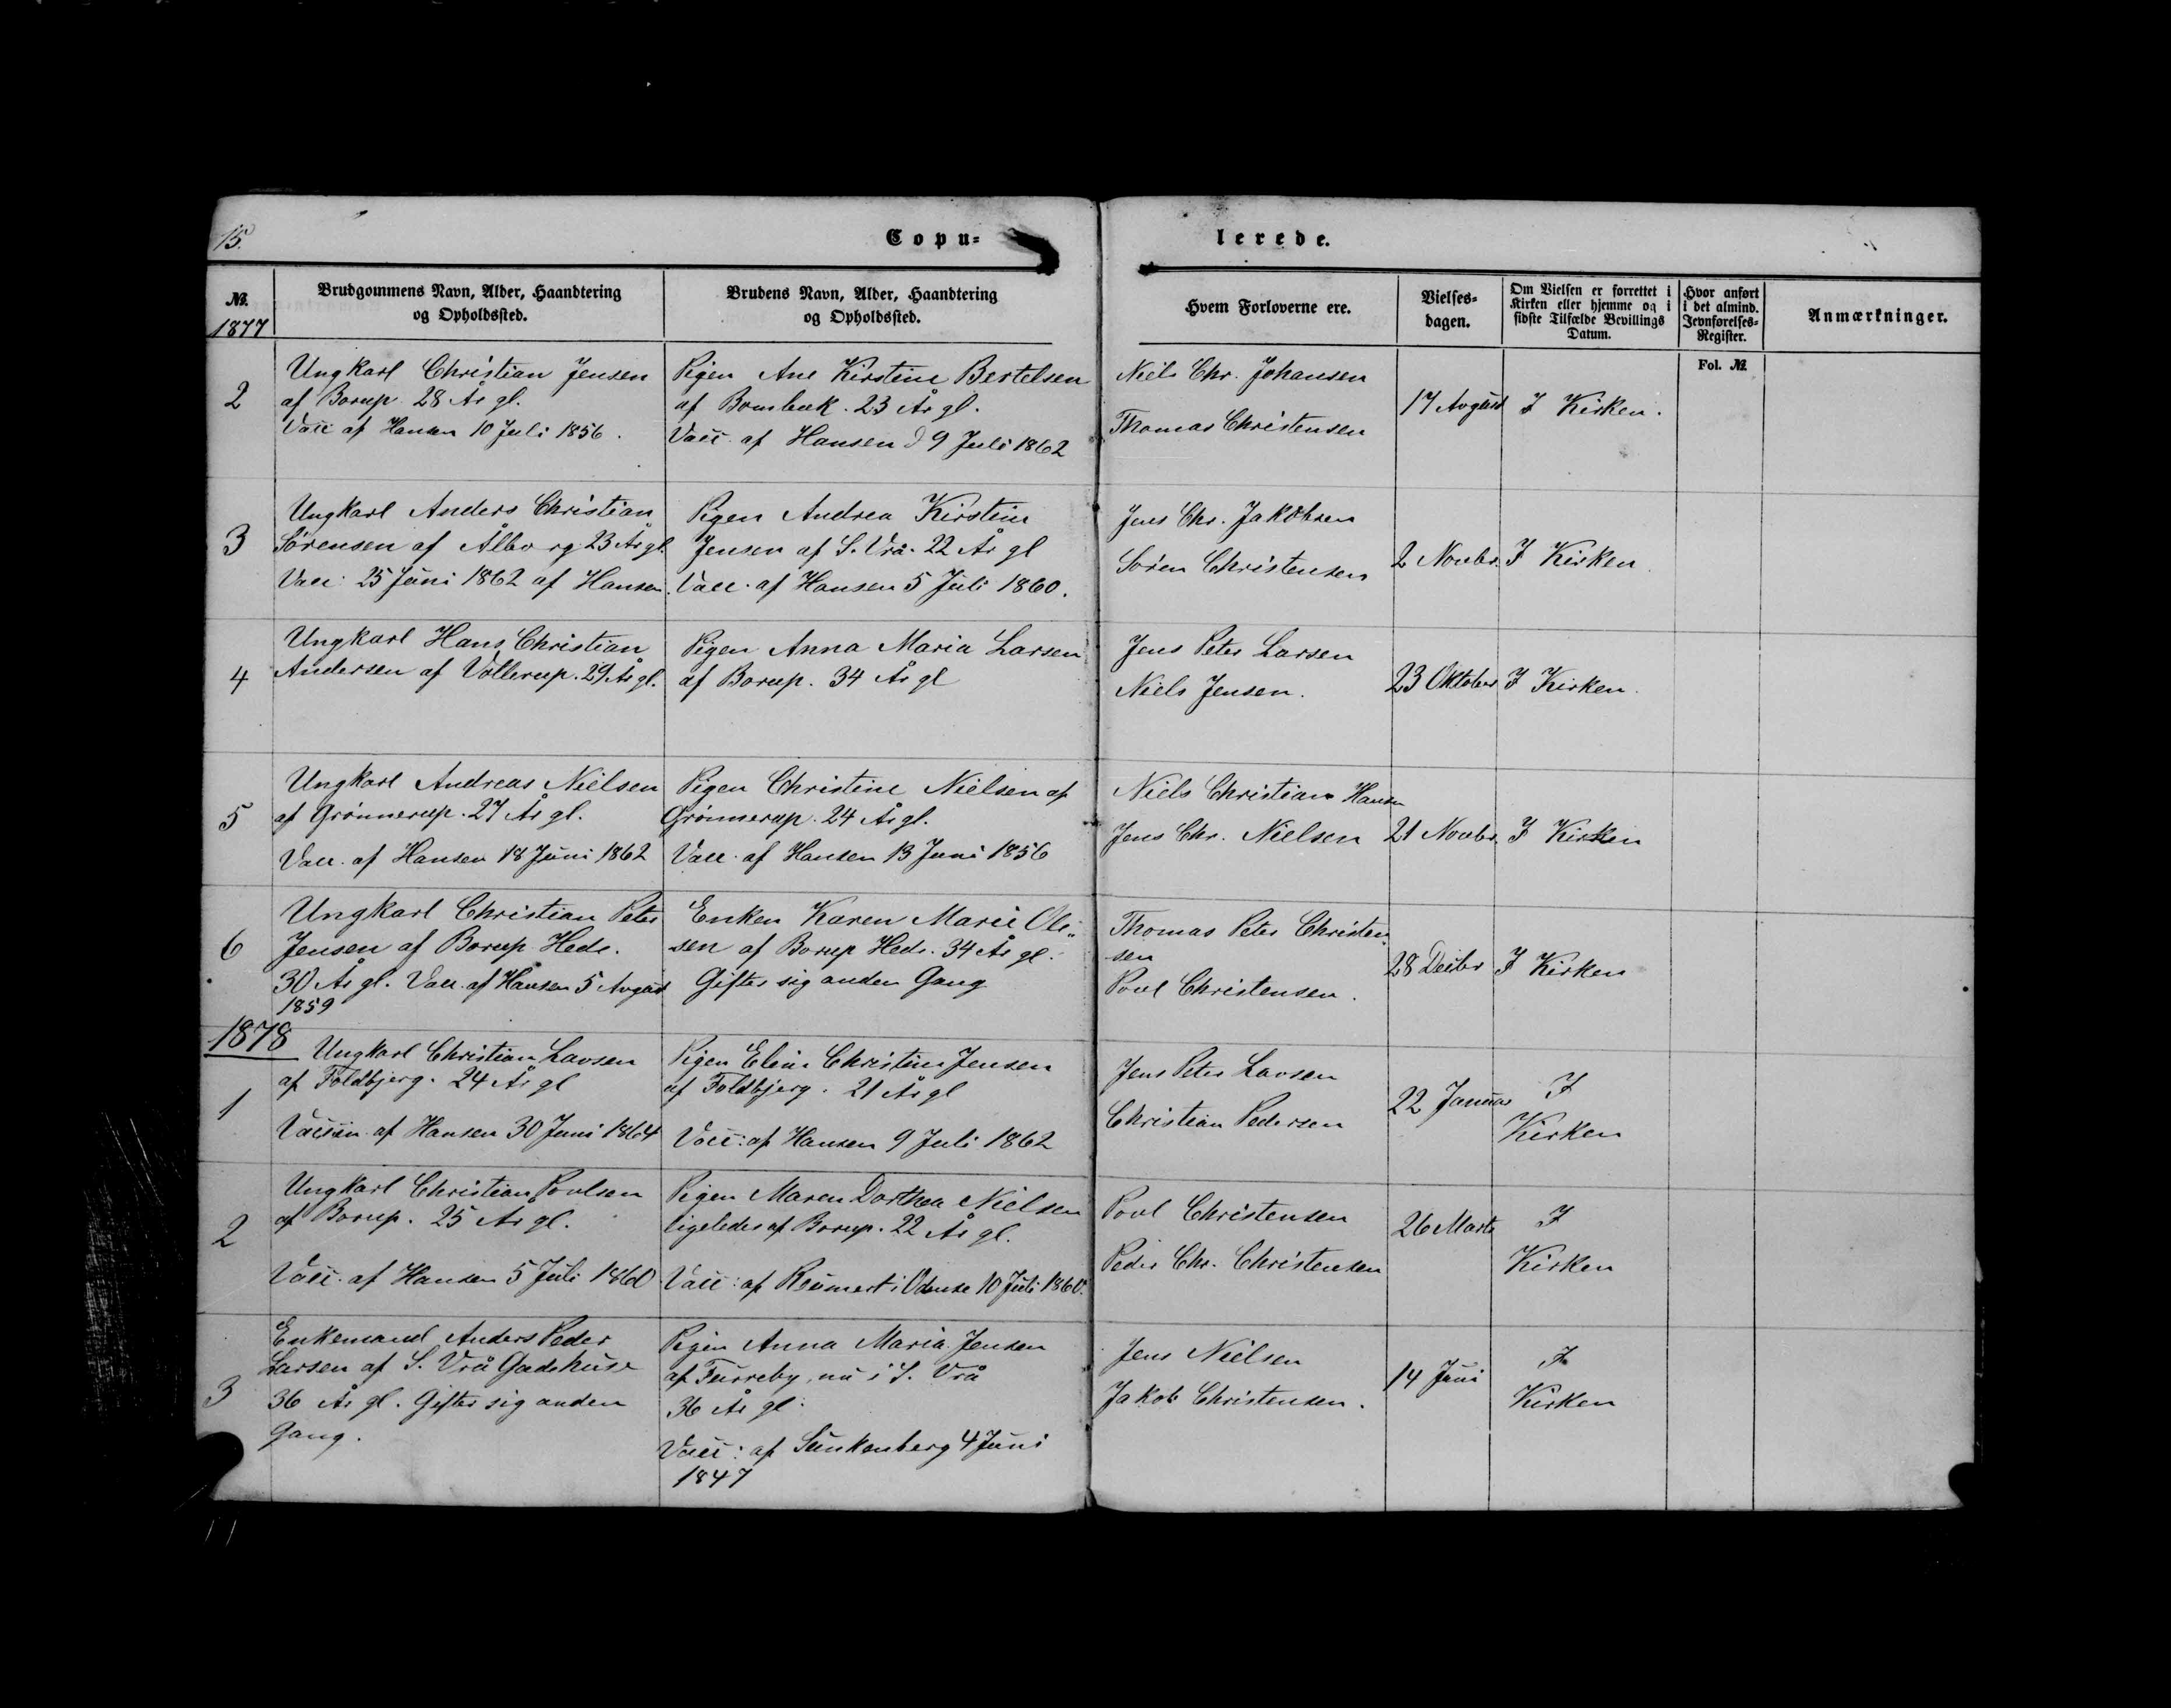 15.
Copu=
lerede.
№
1877
Brudgommens Navn, Alder, Haandtering
og Opholdssted.
Brudens Navn, Alder, Haandtering
og Opholdssted.
Hvem Forloverne ere.
Vielses=
dagen.
Om Vielsen er forrettet i
Kirken eller hjemme og i
sidste Tilfælde Bevillings
Datum.
Hvor anført
i det almind.
Jevnførelses=
Register.
Fol. №
Anmærkninger.
2
Ungkarl Christian Jensen
af Borup. 28 År gl.
Vacc af Hansen 10 Juli 1856.
Pigen Ane Kirstine Bertelsen
af Bombæk. 23 År gl.
Vacc. af Hansen d 9 Juli 1862
Niels Chr. Johansen
Thomas Christensen
17 Avgust
I Kirken.
3
Ungkarl Anders Christian
Sørensen af Ålborg 23 År gl.
Vacc: 25 Juni 1862 af Hansen.
Pigen Andrea Kirstein
Jensen af S. Vrå. 22 År gl
Vacc. af Hansen 5 Juli 1860.
Jens Chr. Jakobsen
Søren Christensen
2 Novbr.
I Kirken
4
Ungkarl Hans Christian
Andersen af Vollerup. 29 År gl.
Pigen Anna Maria Larsen
af Borup. 34 År gl
Jens Peter Larsen
Niels Jensen.
23 Oktober
I Kirken.
5
Ungkarl Andreas Nielsen
af Grønnerup. 27 År gl.
Vacc. af Hansen 18 Juni 1862
Pigen Christine Nielsen af
Grønnerup. 24 År gl.
Vacc. af Hansen 13 Juni 1856
Niels Christian Hansen
Jens Chr. Nielsen
21 Novbr.
I Kirken
6
Ungkarl Christian Peter
Jensen af Borup Hede.
30 År gl. Vacc. af Hansen 5 Avgust
1859
Enken Karen Marie Ole„
sen af Borup Hede. 34 År gl.
Gifter sig anden Gang
Thomas Peter Christen„
sen
Povl Christensen.
28 Decbr
I Kirken
1878
1
Ungkarl Christian Lavsen
af Foldbjerg. 24 År gl
Vaccin. af Hansen 30 Juni 1864
Pigen Eline Christine Jensen
af Foldbjerg. 21 År gl
Vacc: af Hansen 9 Juli 1862
Jens Peter Lavsen
Christian Pedersen
22 Januar
I
Kirken
2
Ungkarl Christian Povlsen
af Borup. 25 År gl.
Vacc. af Hansen 5 Juli 1860
Pigen Maren Dorthea Nielsen
ligeledes af Borup. 22 År gl.
Vacc: af Reumert i Odense 10 Juli 1860.
Povl Christensen
Peder Chr. Christensen
26 Marts
I
Kirken
3
Enkemand Anders Peder
Larsen af S. Vrå Gadehuse
36 År gl. Gifter sig anden
Gang.
Pigen Anna Maria Jensen
af Furreby, nu i S. Vrå
36 År gl.
Vacc: af Sunkenberg 4 Juni
1847
Jens Nielsen
Jakob Christensen.
14 Juni
I
Kirken